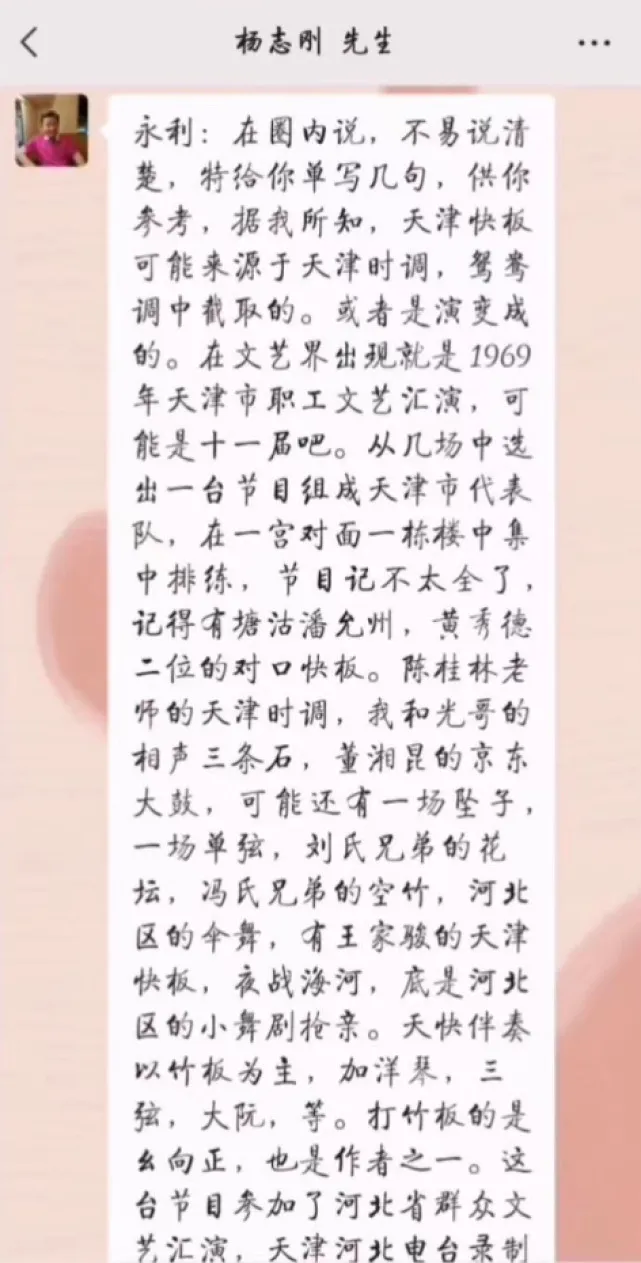 杨志刚 先生
永利：在圈内说，不易说清
楚，特给你单写几句，供你
参考，据我所知，天津快板
可能来源于天津时调，鸳鸯
调中截取的。或者是演变成
的。在文艺界出现就是1969
年天津市职工文艺汇演，可
能是十一届吧。从几场中选
出一台节目组成天津市代表
队，在一宫对面一栋楼中集
中排练，节目记不太全了，
记得有塘沽潘允州，黄秀德
二位的对口快板。陈桂林老
师的天津时调，我和光哥的
相声三条石，董湘昆的京东
大鼓，可能还有一场坠子，
一场单弦，刘氏兄弟的花
坛，冯氏兄弟的空竹，河北
区的伞舞，有王家骏的天津
快板，夜战海河，底是河北
区的小舞剧抢亲。天快伴奏
以竹板为主，加洋琴，三
弦，大阮，等。打竹板的是
幺向正，也是作者之一。这
台节目参加了河北省群众文
艺汇演，天津河北电台录制